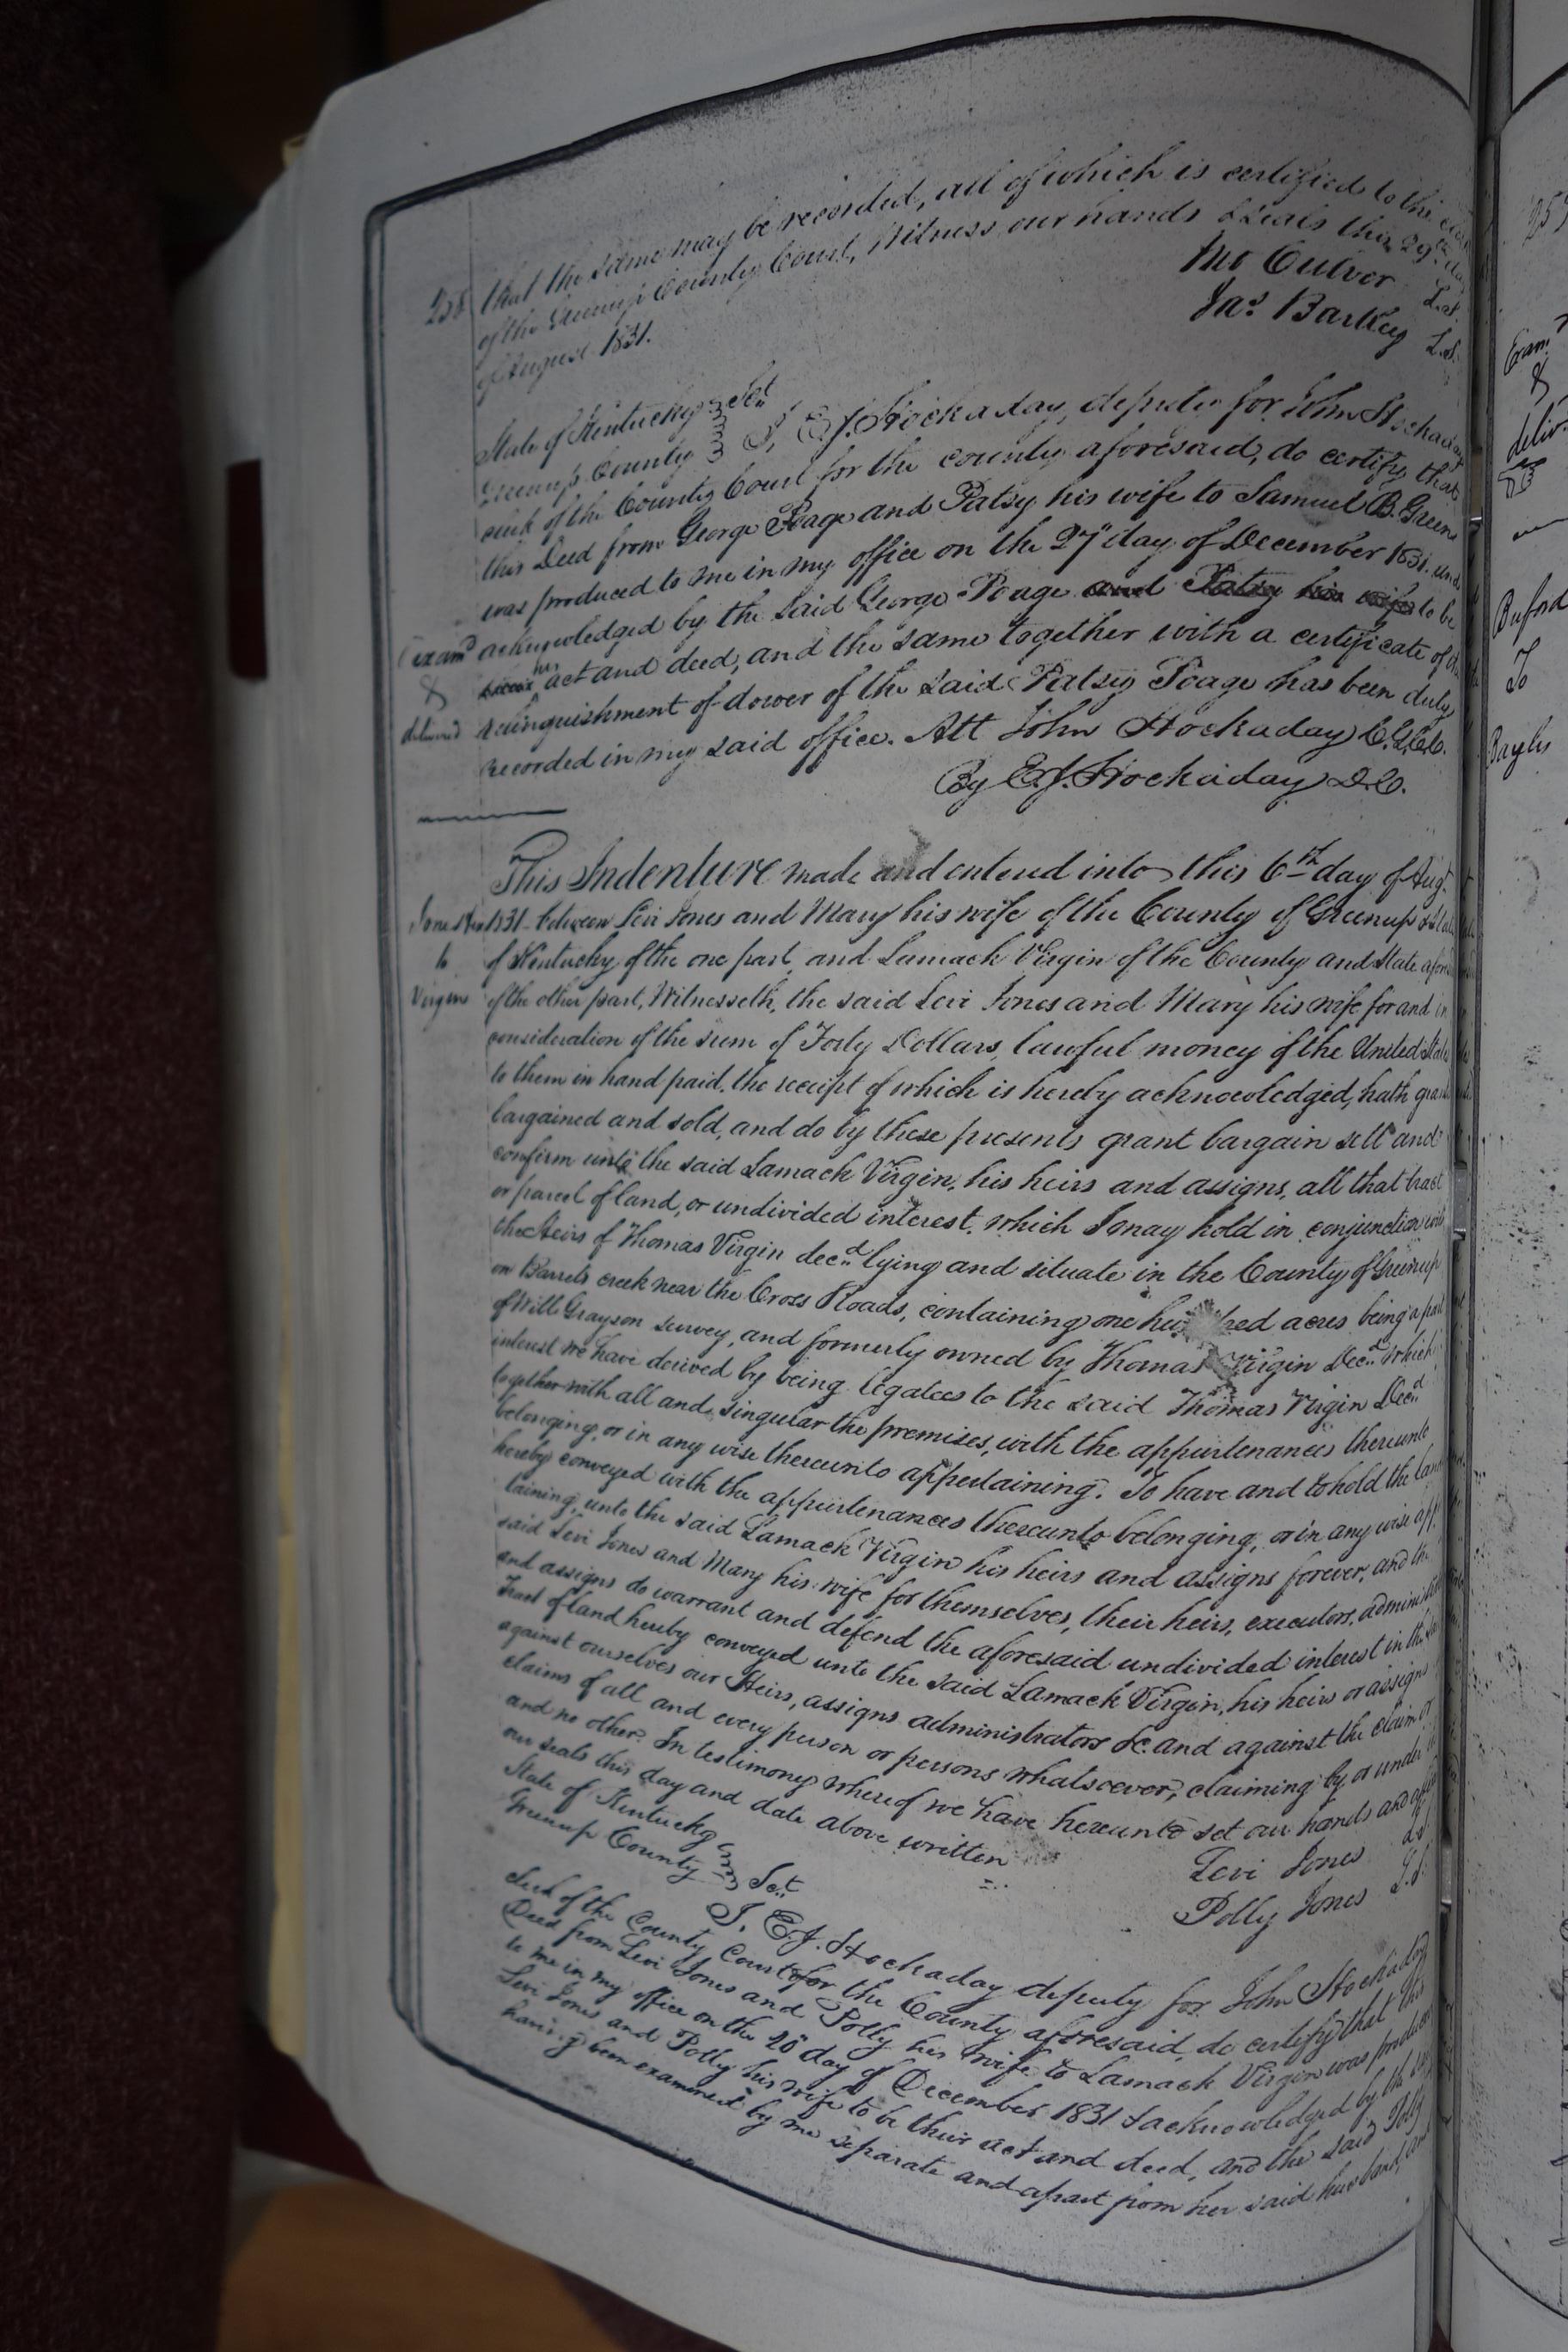 258 that the same may be recorded, all of which is certified to the clerk
of the Greenup County Court, Witness our hands & seals this 29th day
of August 1831.
Jno Culver L.s.
Jas. Barkley L.s.
State of Kentucky Sct
Greenup County I, E. J. Hockaday, deputy for John Hockaday
clerk of the County Court for the county aforesaid, do certify, that
this Deed from George Poage and Patsy his wife to Samuel B. Green
was produced to me in my office on the 27" day of December 1831. and
Examd acknowledged by the said George Poage and Patsy his wife to be
& his act and deed, and the same together with a certificate of the
delivered relinquishment of dower of the said Patsy Poage has been duly
recorded in my said office. Att John Hockaday C.G.C.C.
By E. J. Hockaday D.C.
This Indenture made and entered into this 6th day of Augt.
Jones & ux 1831 between Levi Jones and Mary his wife of the County of Greenup & State
to of Kentucky of the one part, and Lamack Virgin of the County and State afores
Virgins of the other part, Witnesseth, the said Levi Jones and Mary his wife for and in
consideration of the sum of Forty Dollars, lawful money of the United States
to them in hand paid, the receipt of which is hereby acknowledged, hath gran
bargained and sold, and do by these presents grant bargain sell and
confirm unto the said Lamack Virgin, his heirs and assigns, all that tract
or parcel of land, or undivided interest, which I may hold in conjunction with
the Heirs of Thomas Virgin decd. lying and situate in the County of Greenup
on Barrets creek near the Cross Roads, containing one hundred acres being a part
of Will Grayson survey, and formerly owned by Thomas Virgin Decd. which
interest we have derived by being legatees to the said Thomas Virgin Decd
together with all and singular the premises, with the appurtenances thereunto
belonging, or in any wise thereunto appertaining. To have and to hold the land
hereby conveyed with the appurtenances thereunto belonging, or in any wise app
taining, unto the said Lamack Virgin his heirs and assigns forever, and the
said Levi Jones and Mary his wife for themselves, their heirs, executors, administ
and assigns do warrant and defend the aforesaid undivided interest in the said
Tract of land hereby conveyed unto the said Lamack Virgin, his heirs or assigns
against ourselves our Heirs, assigns administrators &c. and against the claim or
claims of all and every person or persons whatsoever, claiming by or under us
and no other. In testimony whereof we have hereunto set our hands and affix
our seals this day and date above written
Levi Jones L.S.
Polly Jones L.S.
State of Kentucky
Greenup County Sct
I, E. J. Hockaday deputy for John Hockaday
clerk of the County Court for the County aforesaid, do certify that this
Deed from Levi Jones and Polly his wife to Lamack Virgin was produced
to me in my office on the 20" day of December 1831 & acknowledged by the said
Levi Jones and Polly his wife to be their act and deed, and the said Polly
having been examined by me separate and apart from her said husband, and
Exam
&
deliv.
Buford
To
Bayles